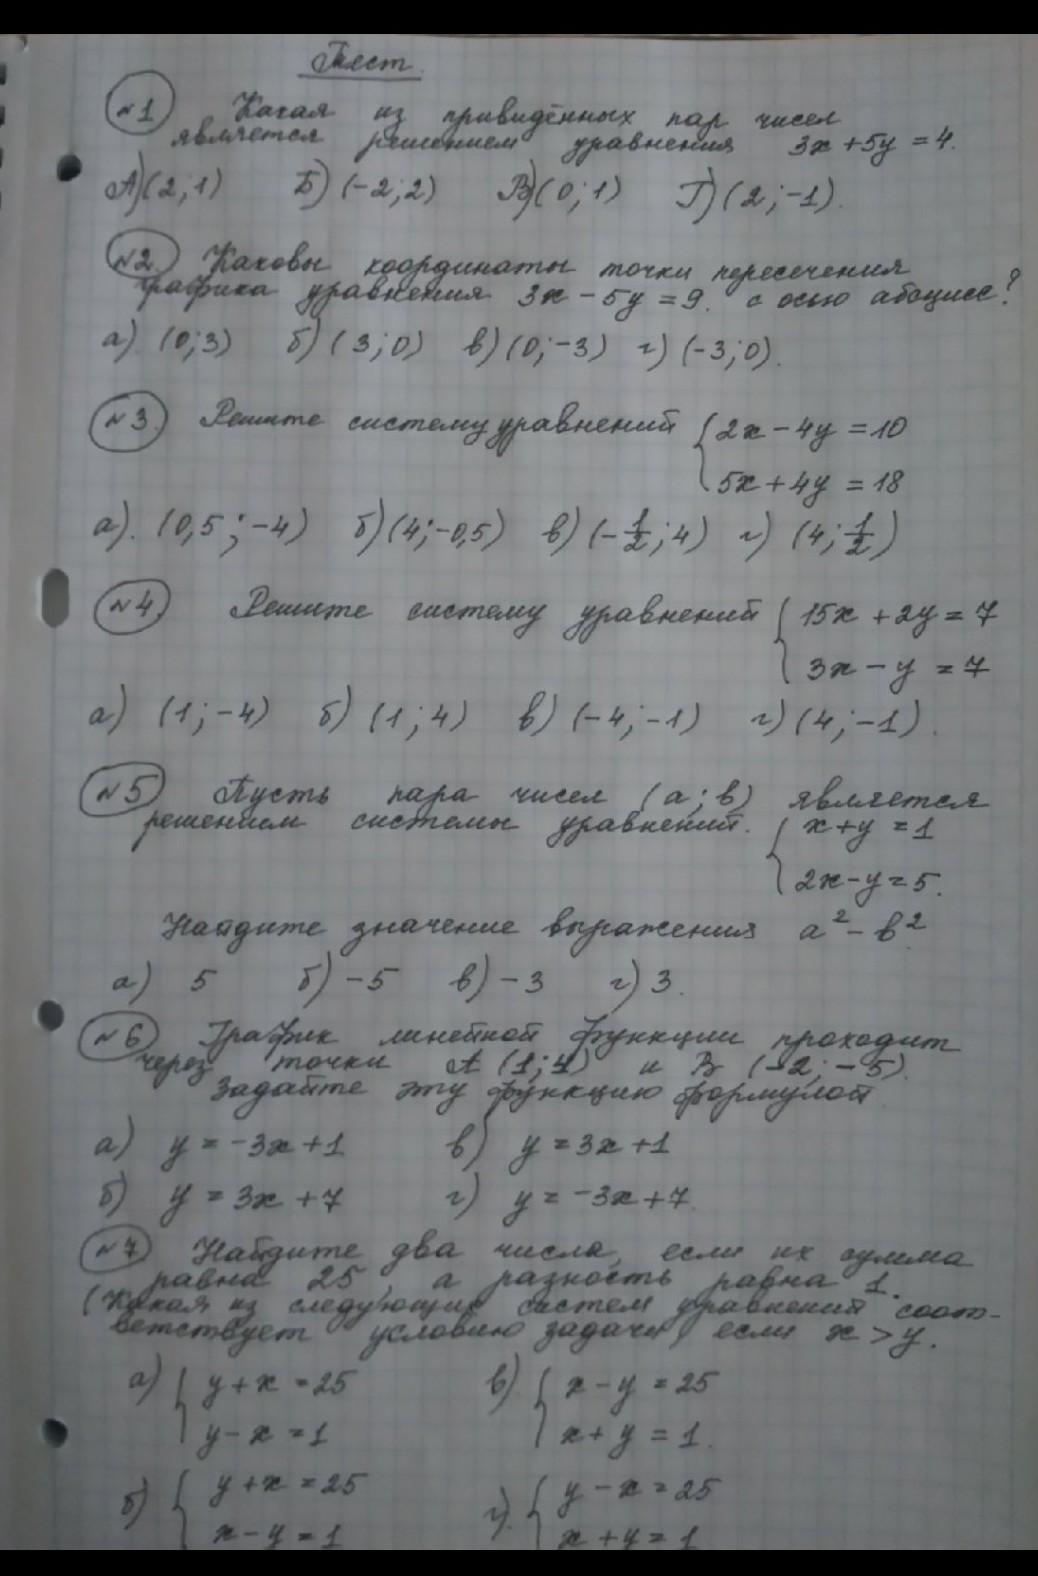 Тест.
№1 Какая из привидённых пар чисел
является решением уравнения 3x+5y=4.
А) (2;1) Б) (-2;2) В) (0;1) Г) (2;-1).
№2. Каковы координаты точки пересечения
графика уравнения 3x-5y=9. с осью абсцисс?
а) (0;3) б) (3;0) в) (0;-3) г) (-3;0).
№3. Решите систему уравнений { 2x-4y=10
5x+4y=18
а). (0,5;-4) б) (4;-0,5) в) (-1/2;4) г) (4;1/2)
№4 Решите систему уравнений { 15x+2y=7
3x-y=7
а) (1;-4) б) (1;4) в) (-4;-1) г) (4;-1).
№5 Пусть пара чисел (а;в) является
решением системы уравнений. { x+y=1
2x-y=5.
Найдите значение выражения a²-в².
а) 5 б) -5 в) -3 г) 3.
№6 График линейной функции проходит
через точки А (1;4) и В (-2;-5).
Задайте эту функцию формулой
а) y=-3x+1 в) y=3x+1
б) y=3x+7 г) y=-3x+7.
№7 Найдите два числа, если их сумма
равна 25, а разность равна 1.
(Какая из следующих систем уравнений соот-
ветствует условию задачи, если x>y.
а) { y+x=25 в) { x-y=25
y-x=1 x+y=1.
б) { y+x=25 г). { y-x=25
x-y=1 x+y=1